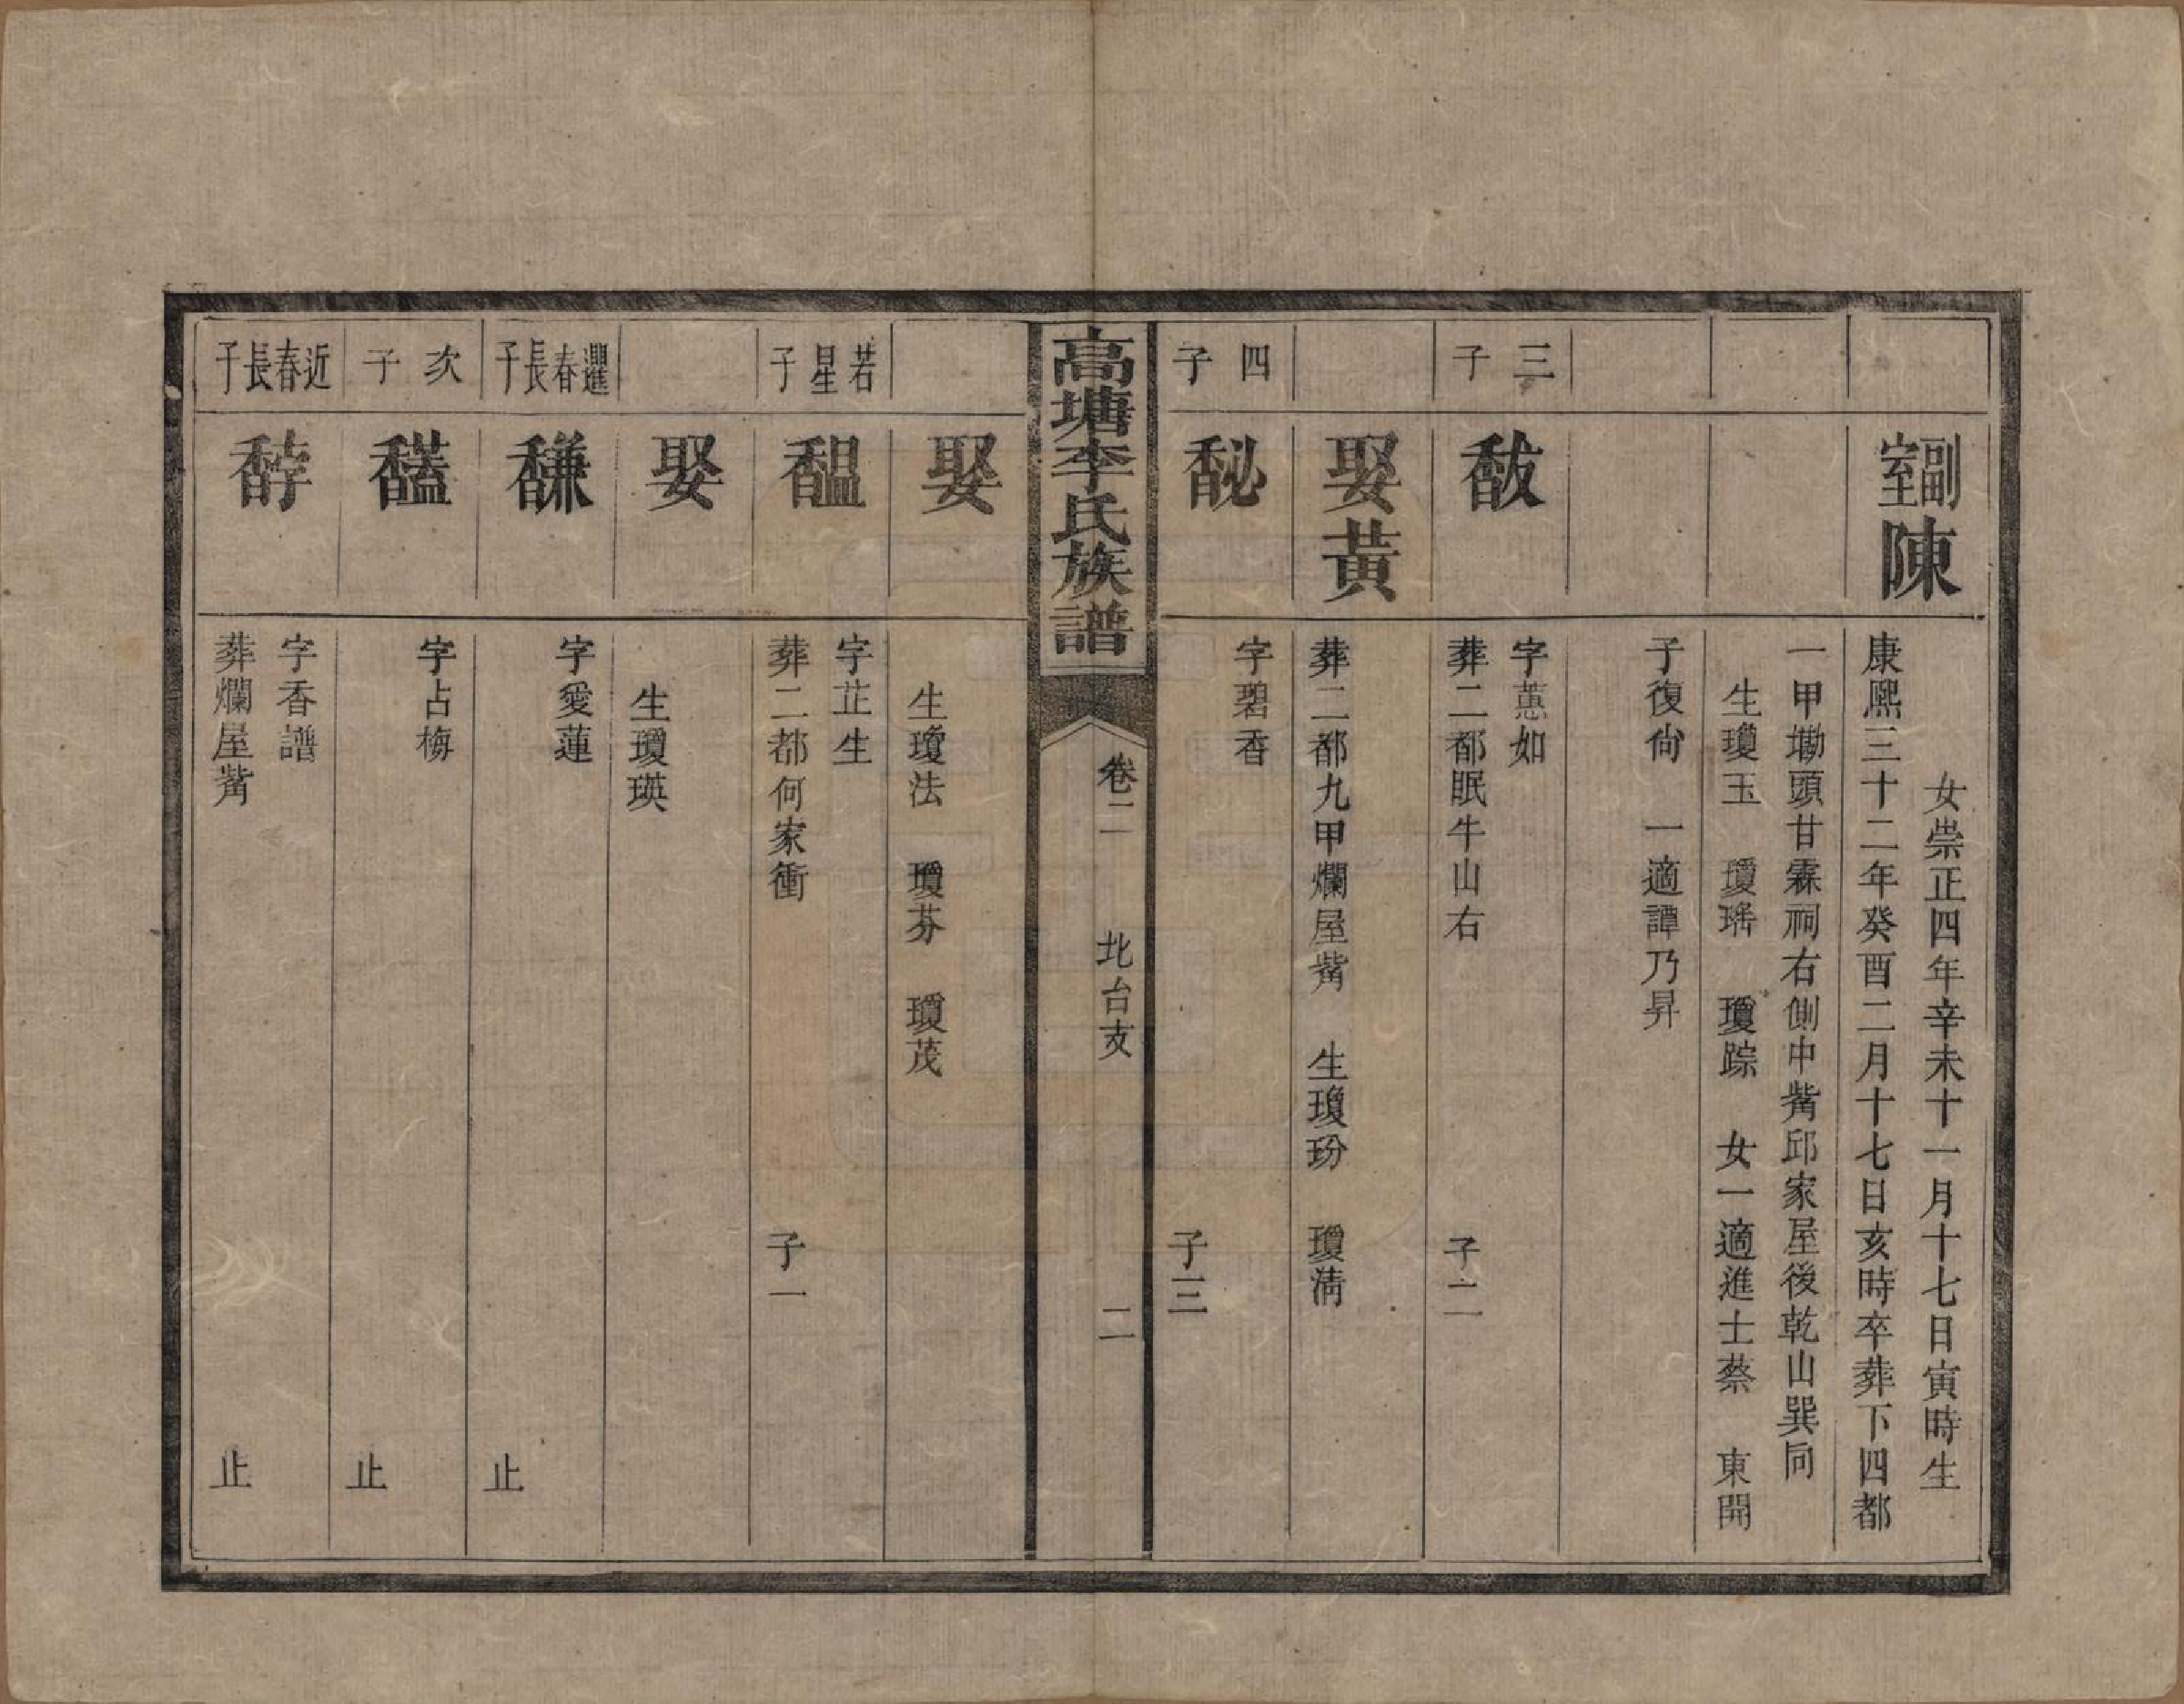 副室陳
女崇正四年辛未十一月十七日寅時生
康熙三十二年癸酉二月十七日亥時卒葬下四都
一甲塘頭甘霖祠右側中觜邱家屋後乾山巽向
生瓊玉 瓊瑤 瓊踪 女一適進士蔡 東開
子復尙 一適譚乃昇
三子
馛
字蕙如
葬二都眠牛山右 子二
娶黃
葬二都九甲爛屋觜 生瓊玢 瓊淸
四子
馝
字碧香
子三
高塘李氏族譜
卷二 北台支 二
娶
生瓊法 瓊芬 瓊茂
若星子
馧
字芷生
葬二都何家衝 子一
娶
生瓊瑛
選春長子
馦
字愛蓮
止
次子
馤
字占梅
止
近春長子
馞
字香譜
葬爛屋觜 止